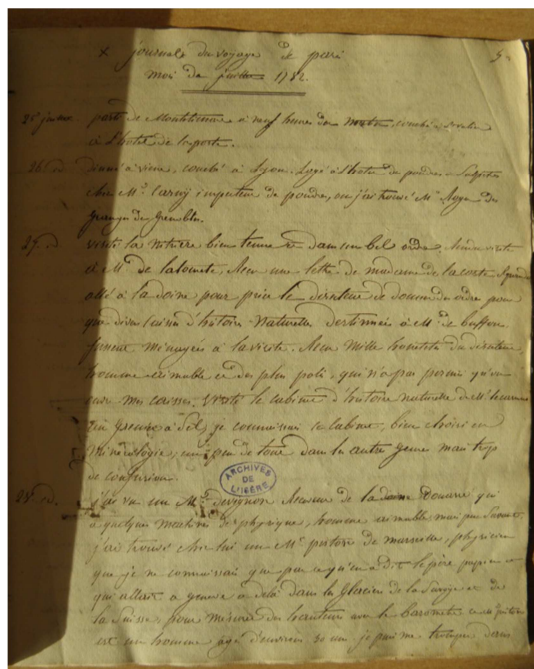 x journal du voyage de paris 5.
mois de juillet 1782.
25 juillet. parti de Montélimar à neuf heures du matin couché à
à l'hotel de la poste.
26 id diné à vienne, couché à Lyon. Logé à l'hotel de poudres et Salpetre
chez Mr. inspecteur de poudres, ou j'ai trouvé Mr. des
granges de Grenoble.
27. id visité la bien tenue et dans un bel ordre. rendu visite
à Mr de latourette, Recu une lettre de madame de la
allé à la doine pour prier le directeur de donner des ordres pour
que caisses d'histoire Naturelle destinées à Mr de buffon
fussent ménagées à la visite. Recu mille honnetetés du directeur
homme aimable et des plus polis, qui n'a pas permis qu'on
mes caisses. Visité le cabinet d'histoire naturelle de Mr
à je connaissais ce cabinet, bien choisi en
minéralogie, un peu de tout dans les autres genres mais trop
de confusion.
ARCHIVES DE L'ISÈRE
28. id. j'ai vu un Mr. Receveur de la Douane qui
a quelques machines de physique, homme aimable mais peu Savant
j'ai trouvé chez lui un Mr de marseille, physicien
que je ne connaissais que par ce qu'en a dit le père papon et
qui allait à geneve et delà dans les Glaciers de la Savoye et de
la Suisse, pour mesurer des hauteurs avec le barometre
est un homme agé d'environ 30 ans je puis me tromper dans